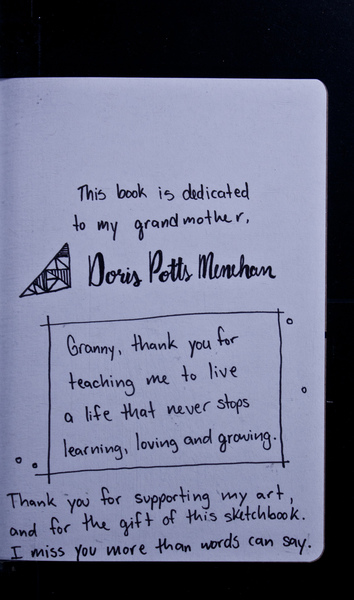 This book is dedicated
to my grandmother,
Doris Potts Menehan
Granny, thank you for
teaching me to live
a life that never stops
learning, loving and growing.
Thank you for supporting my art,
and for the gift of this sketchbook.
I miss you more than words can say.